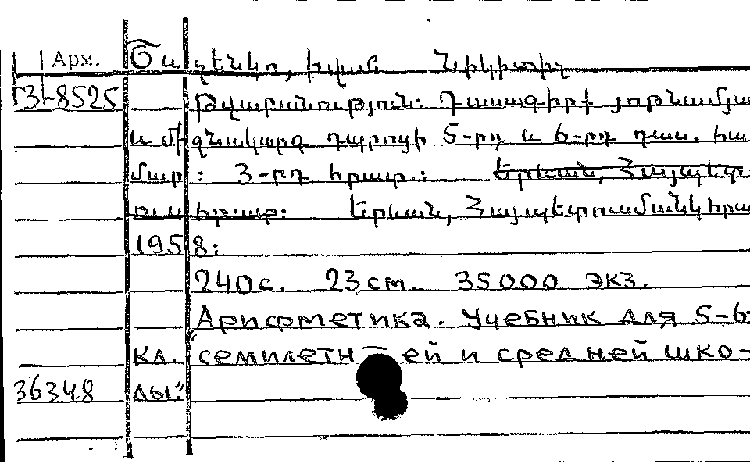 Арм. Շևչենկո, Իվան Նիկիտիչ
3-8525 Թվաբանություն: Դասագիրք յոթնամյա
և միջնակարգ դպրոցի 5-րդ և 6-րդ դաս. հա
մար: 3-րդ հրատ.: Երևան, Հայպետ
ուսհրատ: Երևան, Հայպետուսմանկհրա
1958:
240с. 23см. 35000 экз.
Арифметика. Учебник для 5-6
кл. семилетн-ей и средней шко-
36348 лы: